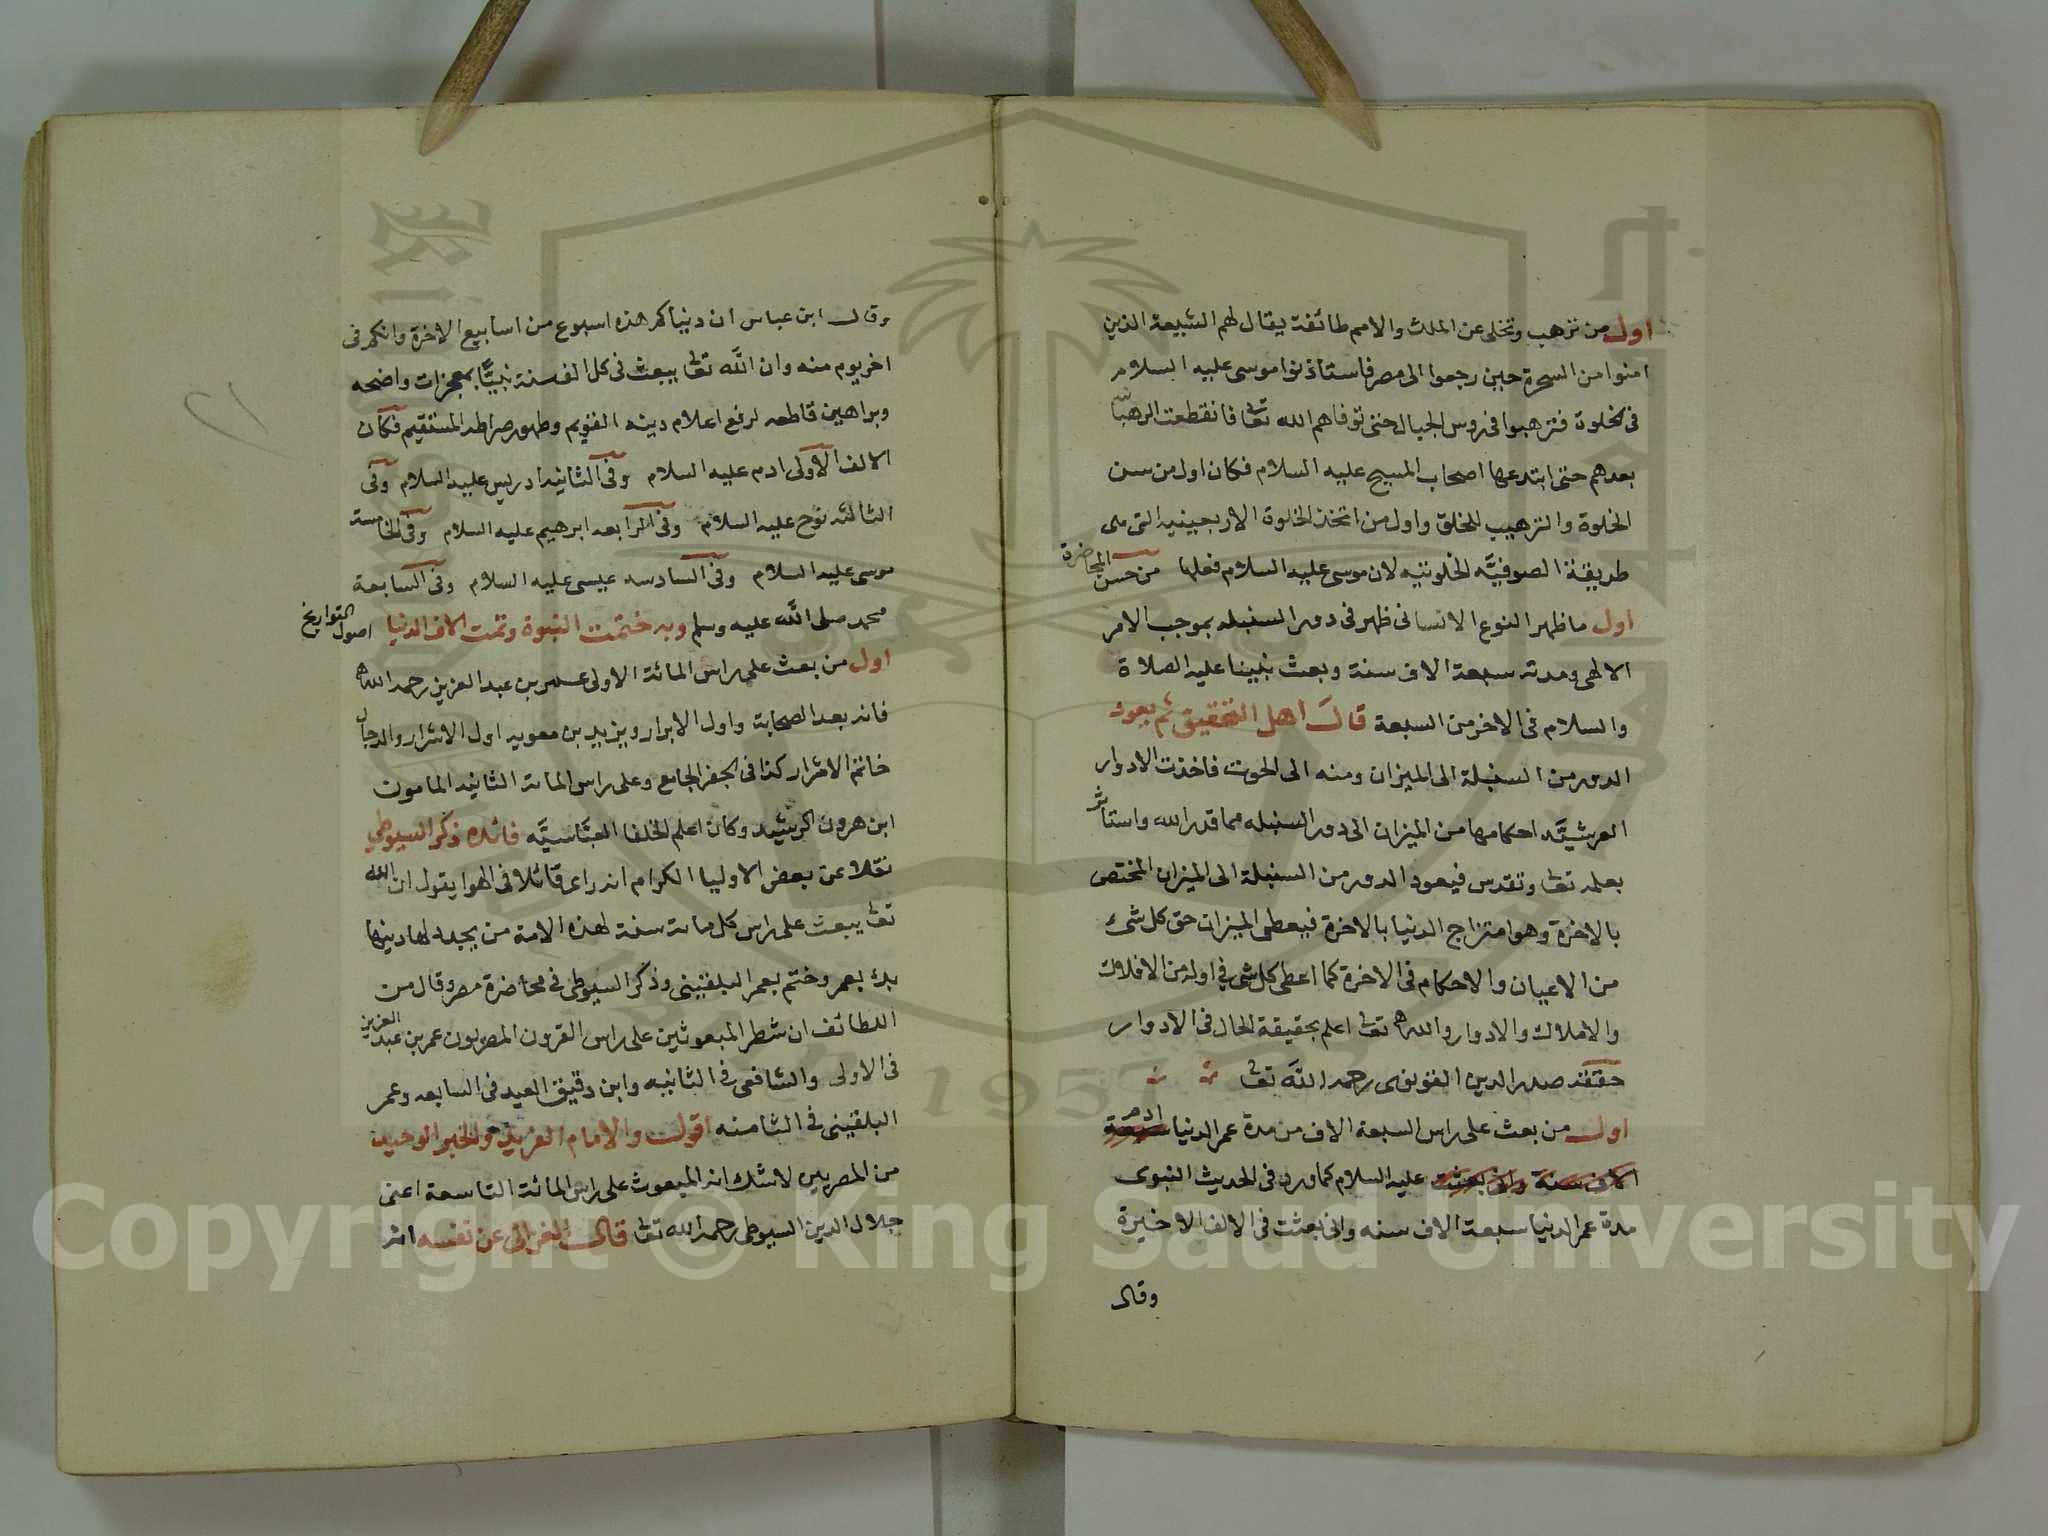 اول من ترهب وتخلى عن الملك والامم طائفة يقال لهم الشيعة الذين
امنوا من السحرة حين رجعوا الى مصر فاستاذنوا موسى عليه السلام
فى الخلوة فترهبوا فى روس الجبال حتى توفاهم الله تعا فانقطعت الرهبانية
بعدهم حتى ابتدعها اصحاب المسيح عليه السلام فكان اول من سن
الخلوة والترهيب للخلق واول من اتخذ الخلوة الاربعينيه التى هى
طريقة الصوفيَّه الخلوتيه لان موسى عليه السلام فعلها من حسن المحاضرة
اول ما ظهر النوع الانسانى ظهر فى دور السنبله بموجب الامر
الالهى ومدته سبعة الاف سنة وبعث نبينا عليه الصلاة
والسلام فى الاخر من السبعة قال اهل التحقيق ثم يعود
الدور من السنبلة الى الميزان ومنه الى الحوت فاخذت الادوار
العرشيَّه احكامها من الميزان الى دور السنبله مما قدر الله واستاثر
بعلمه تعا وتقدس فيعود الدور من السنبلة الى الميزان المختص
بالاخرة وهو امتزاج الدنيا بالاخرة فيعطى الميزان حق كل شىء
من الاعيان والاحكام فى الاخرة كما اعطى كل شى فى اوله من الافلاك
والاملاك والادوار والله تعا اعلم بحقيقة الحال فى الادوار
حققه صدر الدين القونوى رحمه الله تعا
اول من بعث على راس السبعة الاف من مدة عمر الدنيا سبعة ادم
الاف سنة وانى بعثت عليه السلام كما ورد فى الحديث النبوى
مدة عمر الدنيا سبعة الاف سنه وانى بعثت فى الالف الاخيرة
وقال
وقال ابن عباس ان دنياكم هذه اسبوع من اسابيع الاخرة وانكم فى
اخر يوم منه وان الله تعا يبعث فى كل الف سنة نبيًّا بمعجزات واضحه
وبراهين قاطعه لرفع اعلام دينه القويم وظهور صراطه المستقيم فكان
الالف الاولى ادم عليه السلام وفى الثانيه ادريس عليه السلام وفى
الثالثه نوح عليه السلام وفى الرابعه ابرهيم عليه السلام وفى الخامسة
موسى عليه السلام وفى السادسه عيسى عليه السلام وفى السابعة
محمد صلى الله عليه وسلم وبه ختمت النبوة وتمت الاف الدنيا اصول التواريخ
اول من بعث على راس المائة الاولى عمر بن عبد العزيز رحمه الله
فانه بعد الصحابة واول الابرار ويزيد بن معويه اول الاشرار والدجال
خاتم الاشرار كذا فى الجفر الجامع وعلى راس الماىة الثانيه المامون
ابن هرون الرشيد وكان اعلم الخلفا العبَّاسيَّه فائده ذكر السيوطي
نقلا عن بعض الاوليا الكرام انه راى قائلا فى الهوا يقول ان الله
تعا يبعث على راس كل ماىة سنة لهذه الامة من يجدد لها دينها
بدئ بعمر وختم بعمر البلقينى وذكر السيوطى فى محاضرة مصر وقال من
اللطائف ان شطر المبعوثين على راس القرون المصريون عمر بن عبد العزيز
فى الاولى والشافعى فى الثانيه وابن دقيق العيد فى السابعه وعمر
البلقينى فى الثامنه اقول والامام الفريد والخبر الوحيد
من المصريين لا شك انه المبعوث على راس المائة التاسعة اعنى
جلال الدين السيوطى رحمه الله تعا قال الغزالى عن نفسه انه
Copyright © King Saud University
1957